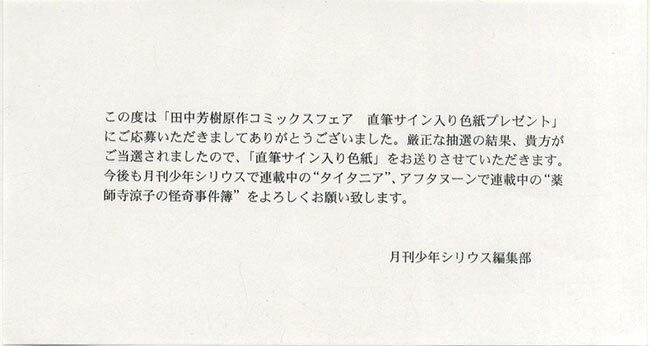 この度は「田中芳樹原作コミックスフェア　直筆サイン入り色紙プレゼント」
にご応募いただきましてありがとうございました。厳正な抽選の結果、貴方が
ご当選されましたので、「直筆サイン入り色紙」をお送りさせていただきます。
今後も月刊少年シリウスで連載中の“タイタニア”、アフタヌーンで連載中の“薬
師寺涼子の怪奇事件簿”をよろしくお願い致します。
月刊少年シリウス編集部